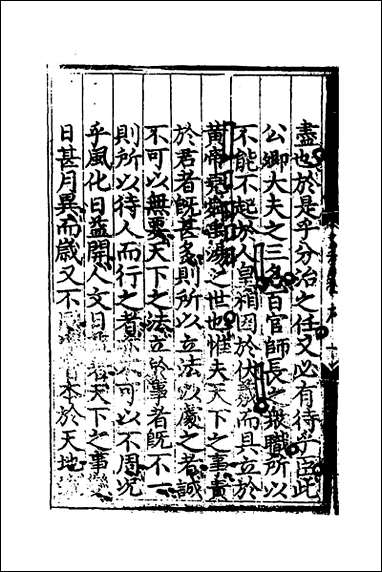 盡也於是乎分治之任又必有待乎臣此
公卿大夫之三名百官師長之衆職所以
不能不起於人皇祖因於伏羲而具立於
黄帝堯舜禹湯之世也惟夫天下之事責
於君者既甚多則所以立法以處之者誠
不可以無要天下之法立於事者既不一
則所以待人而行之者不可以不周况
乎風化日益開人文日天下之事
日甚月異而歳又不本於天地